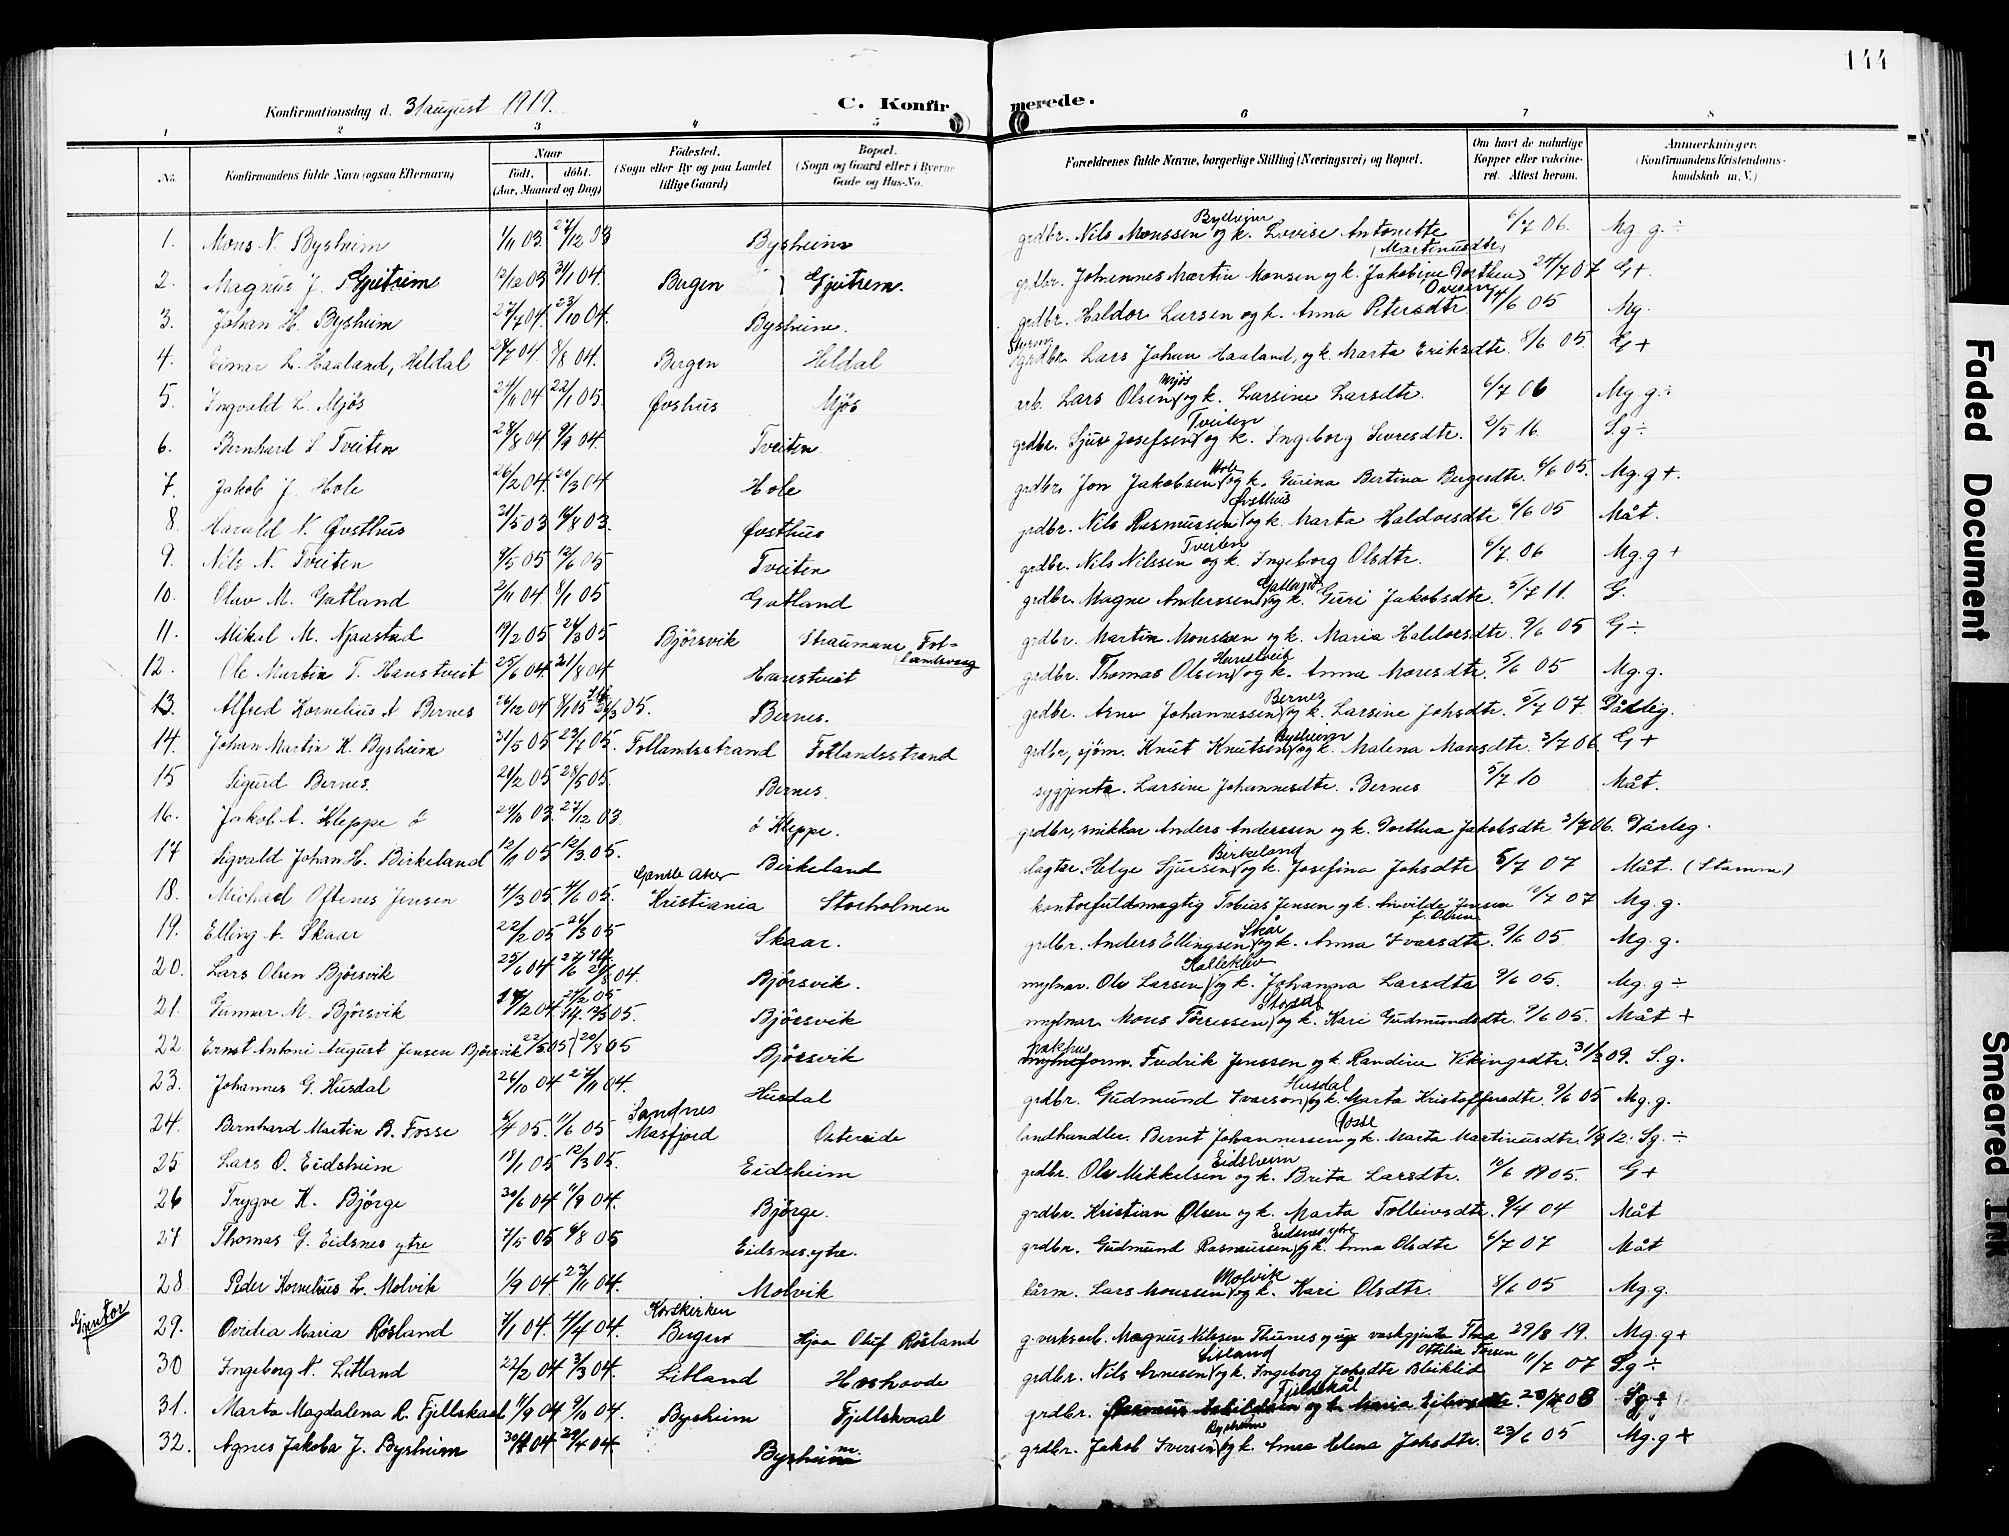 144
Konfirmationsdag d. 31 august 1919.
C. Konfirmerede.
1 2 3 4 5 6 7 8
No. Konfirmandens fulde Navn (ogsaa Efternavn) Naar født. døbt. (Aar, Maaned og Dag) Fødested. (Sogn eller By og paa Landet tillige Gaard) Bopæl. (Sogn og Gaard eller i Byerne Gade og Hus-No. Forældrenes fulde Navne, borgerlige Stilling (Næringsvei) og Bopæl. Om havt de naturlige Kopper eller vakcineret. Attest herom. Anmerkninger. (Konfirmandens Kristendomskundskab m. V.)
1. Mons N. Bysheim 1/11 03 27/12 03 Bysheim grdbr. Nils Monssen og k. Lovise Antonette Martinusdtr. 6/7 06. Mg. g. ÷
2. Magnus J. Gjutrem 12/12 03 31/1 04. Bergen Gjutrem. grdbr. Johannes Martin Monsen og k. Jakobine Dorthea Ovesen 24/7 07 G +.
3. Johan H. Bysheim 27/7 04. 23/10 04. Bysheim. grdbr. Haldor Larsen og k. Anna Petersdtr. 14/6 05 Mg.
4. Einar L. Haaland, Heldal 28/7 04 8/8 04. Bergen Heldal Lars Johan Haaland, og k. Marta Eriksdtr. 8/6 05. G +
5. Ingvald L. Mjös 24/11 04 22/1 05. Øvshus Mjös arb. Lars Olsen Mjös og k. Larsine Larsdtr. 6/7 06 Mg. g. ÷
6. Bernhard S Tveiten 28/8 04. 9/9 04. Tveiten grdbr. Sjur Josefsen Tveiten og k. Ingeborg Sivresdtr. 2/5 16. S.g ÷
7. Jakob J. Hole 26/2 04. 20/3 04 Hole grdbr. Jon Jakobsen Hole og k. Gurina Bertina Bergesdtr. 6/6 05. Mg. g +.
8. Harald N. Øvsthus 31/5 03 16/8 03. Øvsthus grdbr. Nils Rasmussen Øvsthus og k. Marta Haldorsdtr 6/6 05 Måt.
9. Nils N. Tveiten 4/5 05 12/6 05 Tveiten grdbr. Nils Nilssen Tveiten og k. Ingeborg Olsdtr. 6/7. 06 Mg. g +
10. Olav M. Gatland 2/11 04. 8/1 05 Gatland grdbr. Magne Anderssen Gatland og k. Guri Jakobsdtr. 5/7 11. G.
11. Mikel M. Njaastad 19/2 05 26/3 05 Bjørsvik Straumane Fotlandsvaag grdbr. Martin Monssen og k. Maria Haldorsdtr. 9/6 05 G ÷
12. Ole Martin T. Hanstveit 25/6 04. 21/8 04 Hanstveit grdbr. Thomas Olsen Hanstveit og k. Anna Monsdtr. 5/6 05 Mg. g.
13. Alfred Kornelius A Bernes 26/12 04 8/1 05 05. Bernes. grdbr. Arne Johannessen Bernes og k. Larsine Johsdtr. 5/7 07. Dårleg.
14. Johan Martin K. Bysheim 31/5 05 23/7 05. Fotlandsstrand Fotlandsstrand grdbr, sjöm. Knut Knutsen Bysheim og k. Malena Monsdtr. 3/7 06. G +
15 Sigurd Bernes. 24/2 05 28/5 05. Bernes. sygjenta. Larsine Johannesdtr. Bernes 5/7 10 Måt.
16. Jakob A. Kleppe ö 29/10 03. 27/12 03. ö Kleppe. grdbr, snikkar Anders Anderssen og k. Dorthea Jakobsdtr 3/7 06. Dårleg.
17 Sigvald Johan H. Birkeland 12/1 05 12/3. 05. Birkeland slagtar. Helge Sjursen Birkeland og k. Josefina Johsdtr 5/7 07 Måt. (Stamm)
18. Michael Oftenes Jensen 4/3 05 4/6 05. Gamle Aker Kristiania Storholmen kontorfuldmægtig Tobias Jensen og k. Anvilde Jensen f. Olsen 2/7 07 Mg. g.
19. Elling A. Skaar 22/2 05 26/3 05 Skaar. grdbr. Anders Ellingsen Skår og k. Anna Ivarsdtr. 9/6 05 Mg. g.
20. Lars Olsen Bjørsvik 25/6 04 Bjørsvik. mylnar. Ole Larsen Kalleklev og k. Johanna Larsdtr 9/6 05. Mg. g ÷
21. Gunnar M. Bjørsvik Bjørsvik mylnar. Mons Tørressen og k. Kari Gudmundsdtr. 9/6 05. Måt +
22 Ernst Antoni August Jensen Bjørsvik 22/5 05 20/8 05 Bjørsvik pakhusform. Fredrik Jenssen og k. Randine Vikingsdtr. 31/3 09. S. g.
23. Johannes G. Husdal 26/10 04 27/11 04. Husdal grdbr. Gudmund Ivarson Husdal og k. Marta Kristoffersdtr. 9/6 05 Mg. g.
24. Bernhard Martin B. Fosse 6/4 05. 11/6 05 Sandnes Masfjord Ostereide landhandler. Bernt Johannessen Fosse og k. Marta Martinusdtr. 1/9 12. Sg. ÷
25 Lars O. Eidsheim 18/1 05 12/3 05. Eidsheim grdbr. Ole Mikkelsen Eidsheim og k. Brita Larsdtr. 10/6 05. G +
26 Trygve K. Bjørge 30/6 04 11/9 04. Bjørge. grdbr. Kristian Olsen og k. Marta Tolleivsdtr. 9/4 04 Måt
27 Thomas G. Eidsnes ytre 7/5 05 6/8 05 Eidsnes ytre. grdbr. Gudmund Rasmussen Eidsnes ytre og k. Anna Olsdtr 6/7 07 Måt
28 Peder Kornelius L. Molvik 1/9 04 23/11 04. Molvik Lars Monssen Molvik og k. Kari Olsdtr. 8/6 05 Mg. g.
Gjentor
29. Ovidia Maria Røsland 7/1 04. 4/4 04. Korskirken Bergen Hjaa Oluf Røsland g. verksarb. Magnus Nilssen Thunes og ug vaskgjenta Thea Ottilia Torsen 29/8 19. Mg. g +
30 Ingeborg N. Litland 22/2 04 3/3 04. Litland Hoshovde grdbr. Nils Arnesen Litland og k. Ingeborg Johsdtr Bleiklid 11/7 07 S.g ÷
31. Marta Magdalena R. Fjellskaal 11/9 04 9/10 04. Bysheim Fjellskaal grdbr. Rasmus Fjellskål og k. Maria Sg ÷
32. Agnes Jakoba J. Bysheim 04 24/4 04. Bysheim grdbr. Jakob Iversen Bysheim og k. Anna Elena Johsdtr. 23/6 05 Mg. g +
Faded Document
Smeared Ink